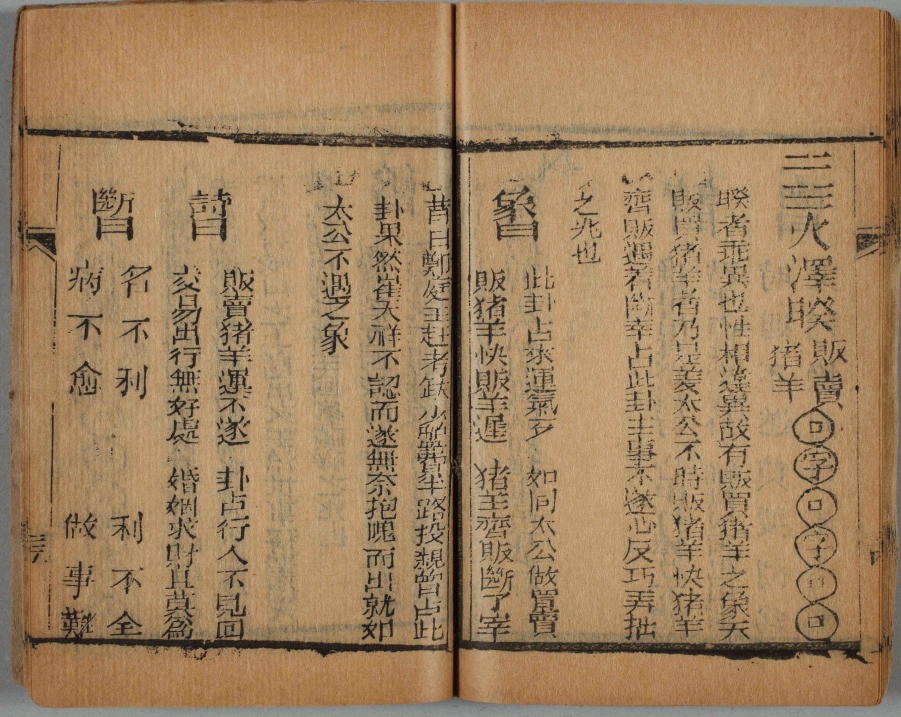 火澤睽 販賣猪羊 口字口字口口
睽者乖異也性相違異故有販買猪羊之象夫
販買猪羊者乃是姜太公不時販猪羊快猪羊
齊販遇着斷宰占此卦主事不遂心反巧弄拙
之兆也
象曰
此卦占來運氣歹 如同太公做買賣
販猪羊快販羊遲 猪羊齊販斷了宰
昔日鄭庭玉赶考缺少盤費半路投親曾占此
卦果然崔大祥不認而遂無奈抱愧而出就如
太公不遇之象
詩曰
販賣猪羊運不遂 卦占行人不見回
交易出行無好處 婚姻求財且莫爲
斷曰
名不利 利不全
病不愈 做事難